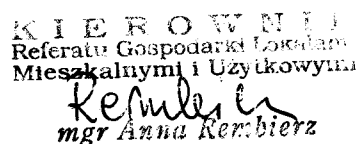 KIEROWNIK
Referatu Gospodarki Lokalami
Mieszkalnymi i Użytkowymi
mgr Anna Rembierz